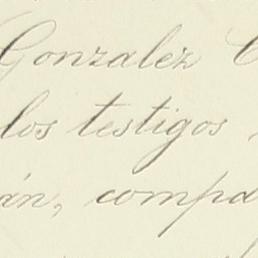 Gonzalez
los testigos
án, compa